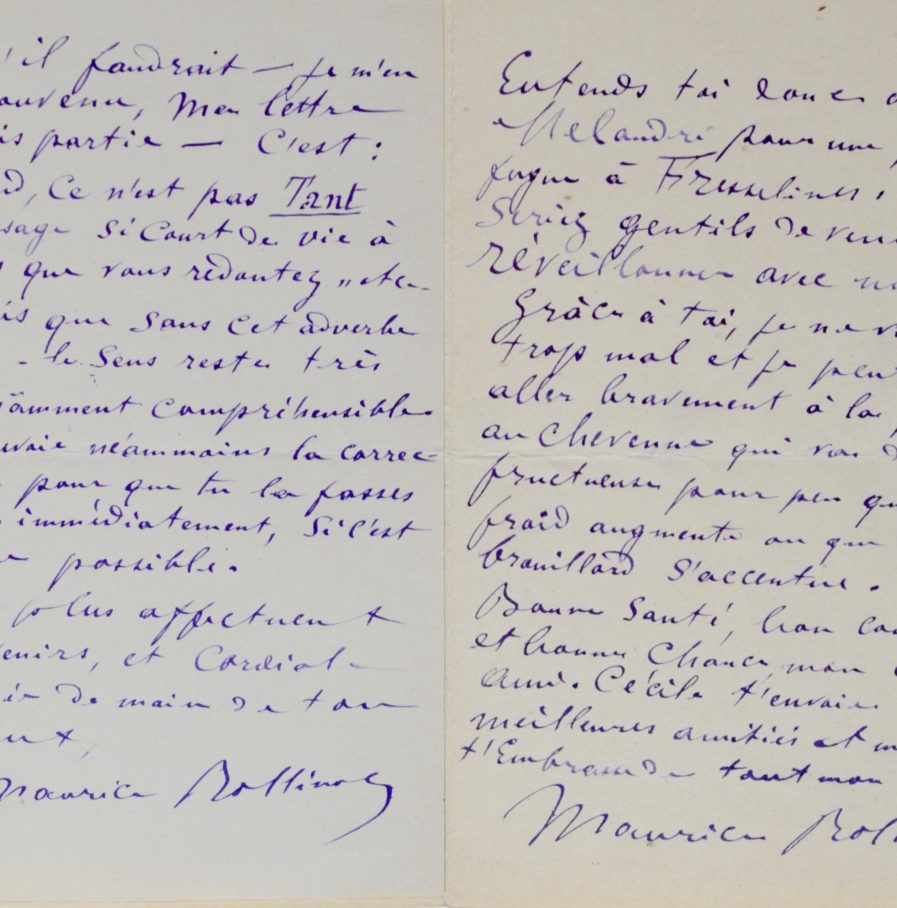 'il faudrait — je m'en
ouvenu, Ma lettre
is partie — C'est :
d, Ce n'est pas Tant
sage si Court de vie à
s que vous redoutez " etc..
is que sans cet adverbe
- le Sens reste très
amment compréhensible.
uvoie néammoins la correc-
pour que tu la fasses
immédiatement, Si c'est
possible.
plus affectueux
enirs, et Cordiale
ée de main de ton
ux,
Maurice Rollinat
Entends toi donc a
Melandri pour une
fugue à Fresselines ;
Seriez gentils de veni
réveillonner avec no
Grâce à toi, je ne v
trop mal et je peu
aller bravement à la
au chevenne qui va d
fructueuse pour peu qu
froid augmente ou que
brouillard S'accentue.
Bonne Santé, bon cou
et bonne Chance, mon
ami. Cécile t'envoie
meilleures amitiés et m
t'Embrasse de tout mon
Maurice Rol